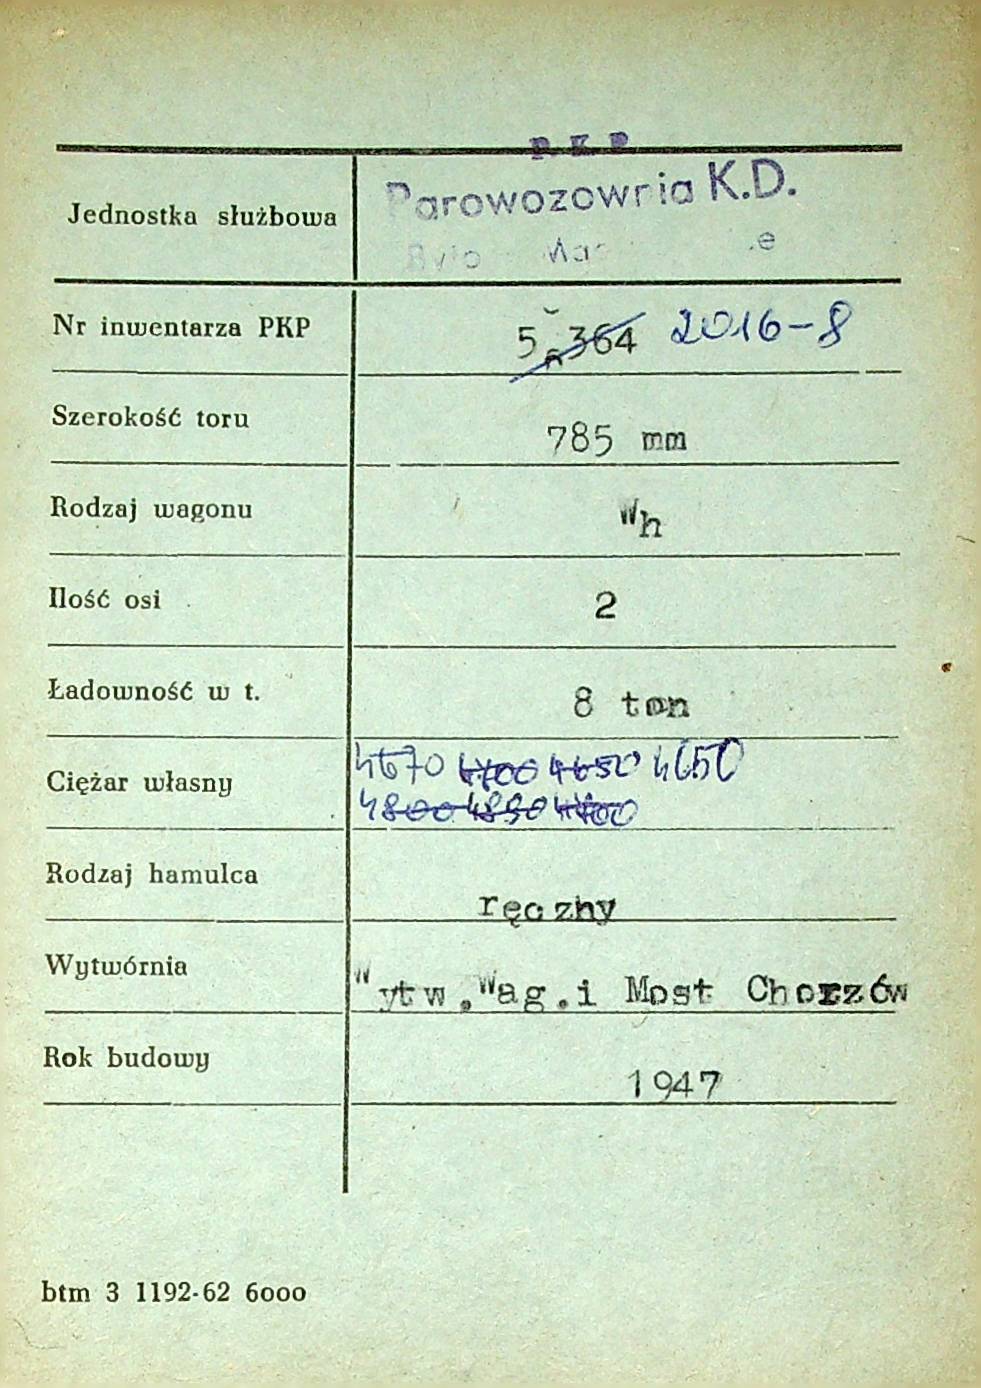 P.K.P.
Jednostka służbowa Parowozownia K.D.
Nr inwentarza PKP 5 364 2016-8
Szerokość toru 785 mm
Rodzaj wagonu Wh
Ilość osi 2
Ładowność w t. 8 ton
Ciężar własny 4670 4700 4650 4650
4800 4890 4700
Rodzaj hamulca ręczny
Wytwórnia Wytw.Wag.i Most Chorzów
Rok budowy 1947
btm 3 1192-62 6000